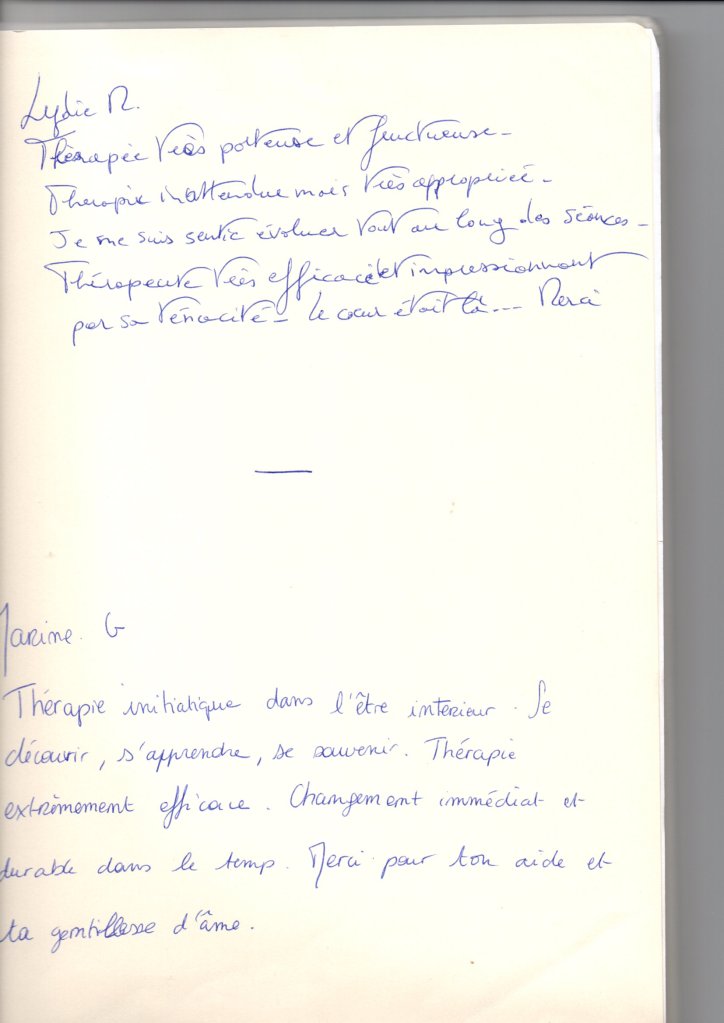 Lydie R.
Thérapie très porteuse et fructueuse -
Therapie inattendue mais très appropriée -
Je me suis sentie évoluer tout au long des séances -
Thérapeute très efficace et impressionnant
par sa ténacité - le cœur était là... Merci
Marine. G
Thérapie initiatique dans l'être intérieur. Se
découvrir, s'apprendre, se souvenir. Thérapie
extrèmement efficace. Changement immédiat et
durable dans le temp. Merci pour ton aide et
ta gentillesse d'âme.